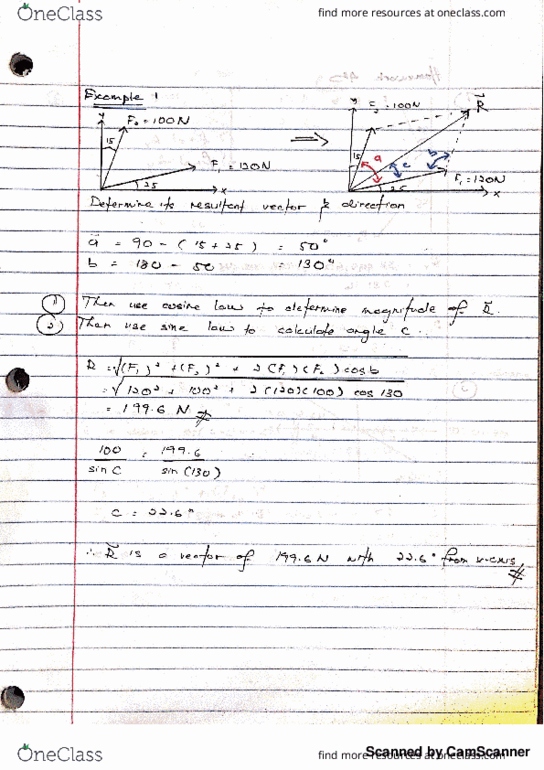 OneClass
find more resources at oneclass.com
Example 1
y
F₂ = 100N
15
F₁ = 120N
25
x
y
F₂ = 100N
R
15
a
c
b
F₁ = 120N
25
x
Determine its resultant vector & direction
a = 90 - (15 + 25) = 50°
b = 180 - 50 = 130°
① Then use cosine law to determine magnitude of R.
② Then use sine law to calculate angle C.
R = √(F₁)² + (F₂)² + 2(F₁)(F₂) cos b
= √120² + 100² + 2(120)(100) cos 130
= 199.6 N
100 = 199.6
sin C sin (130)
C = 22.6°
∴ R is a vector of 199.6 N with 22.6° from x-axis
OneClass
find more resources at oneclass.com
Scanned by CamScanner